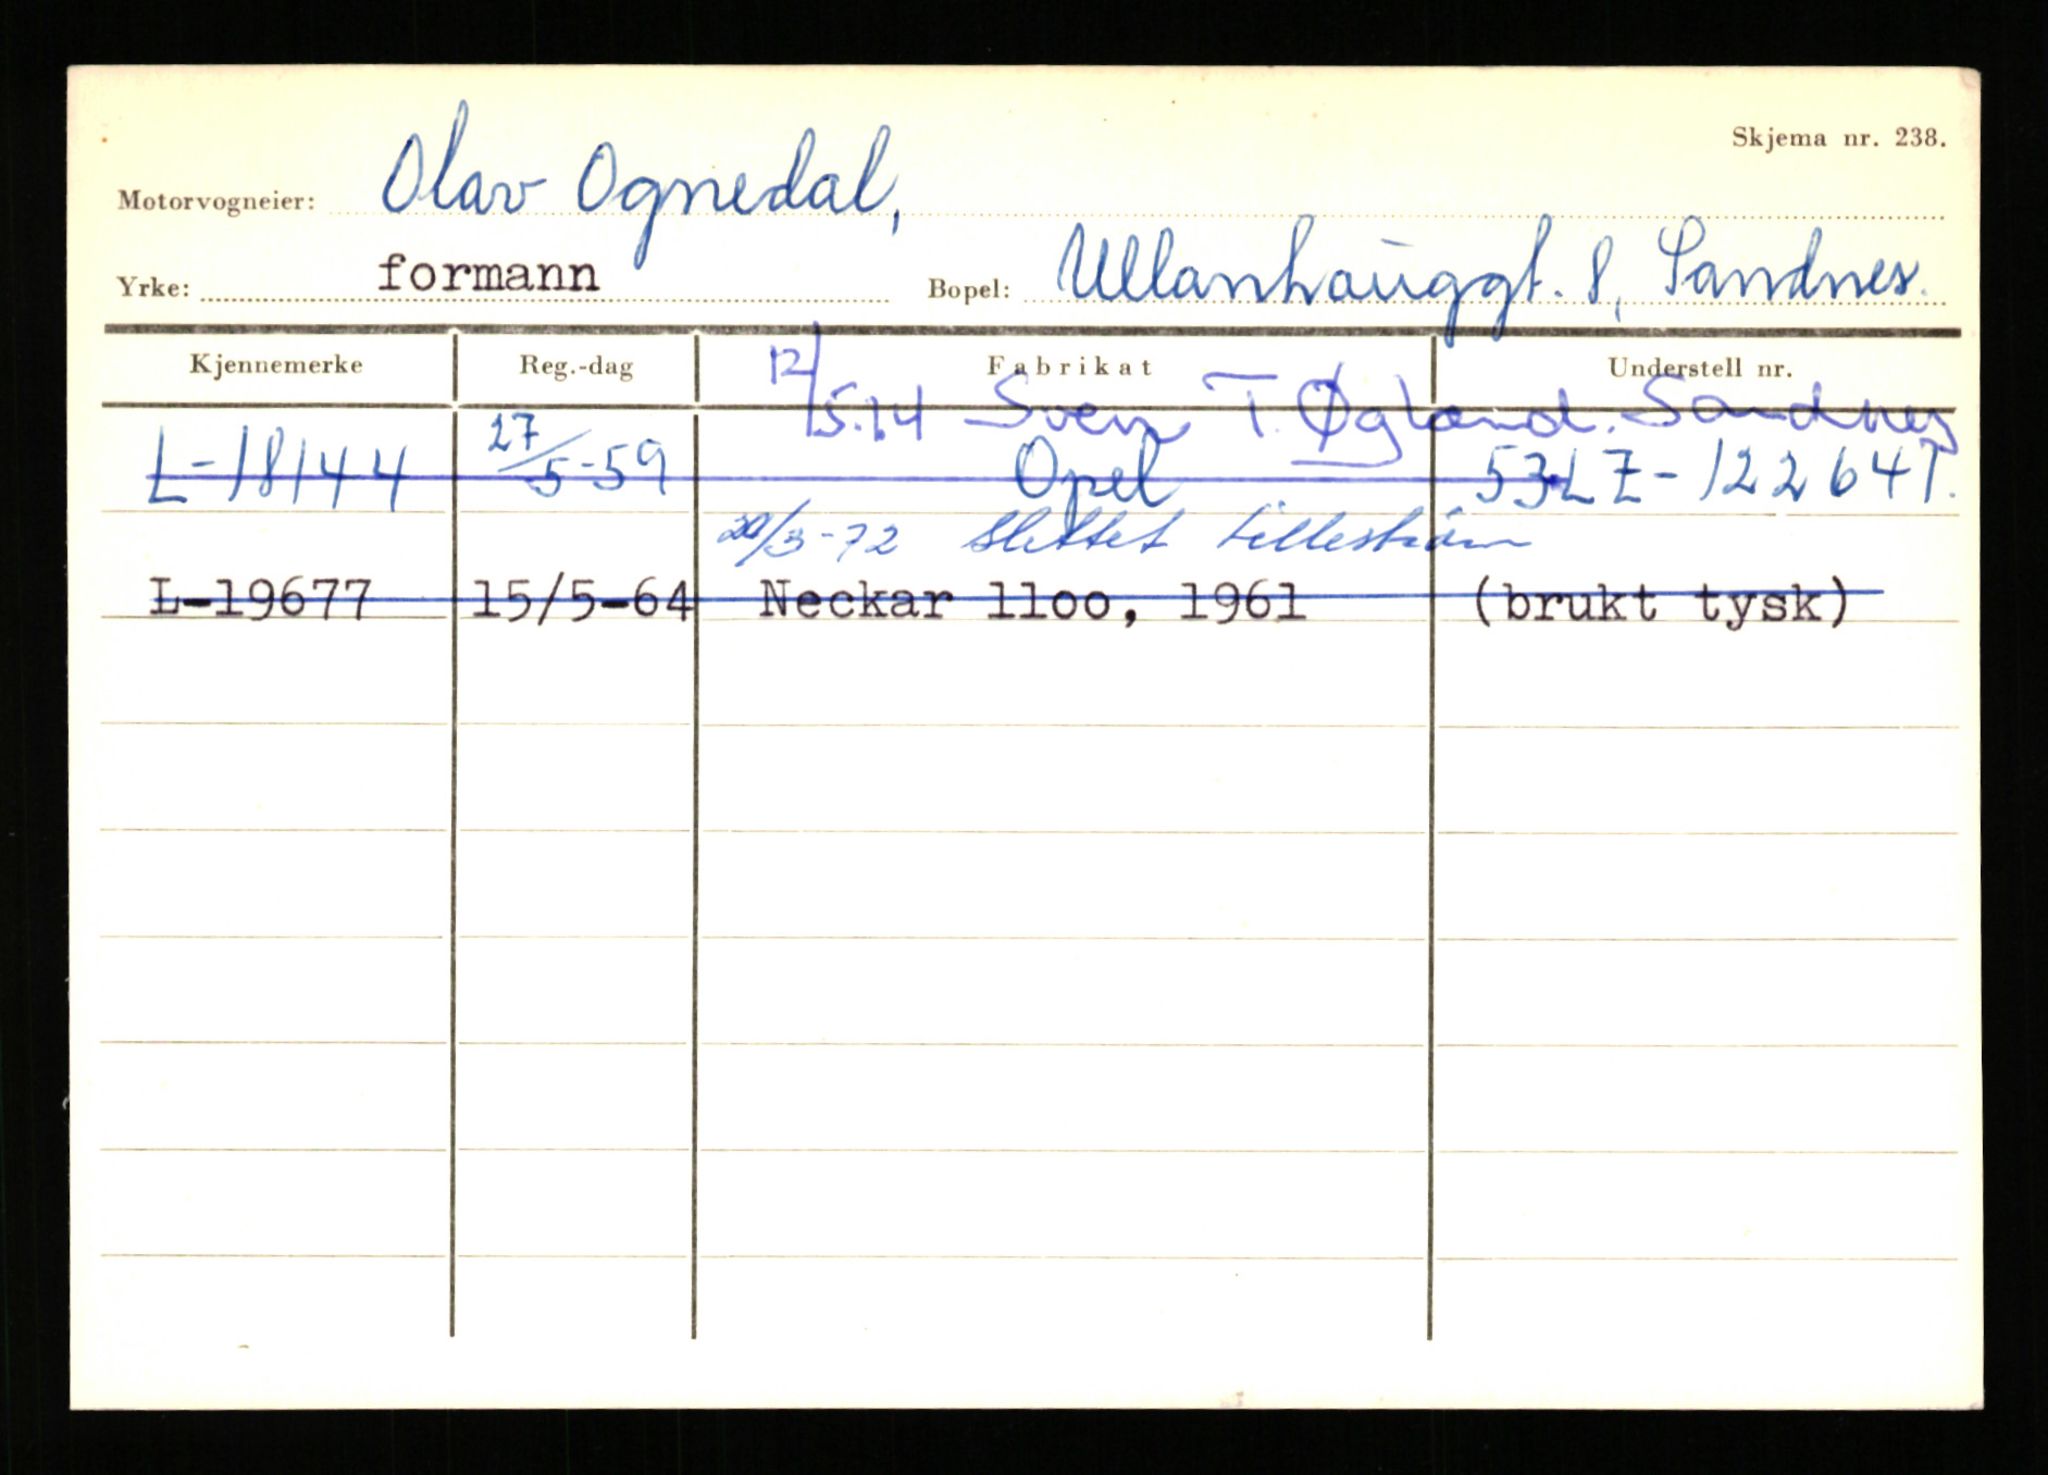 Skjema nr. 238.
Motorvogneier: Olav Ognedal,
Yrke: formann Bopel: Ullanhauggt. 8, Sandnes.
Kjennemerke Reg.-dag Fabrikat Understell nr.
12/5.14 Sven T. Øgland. Sandnes
L-18144 27/5-59 Opel 53LZ-122647.
20/3-72 slettet Lillestrøm
L-19677 15/5-64 Neckar 11oo, 1961 (brukt tysk)